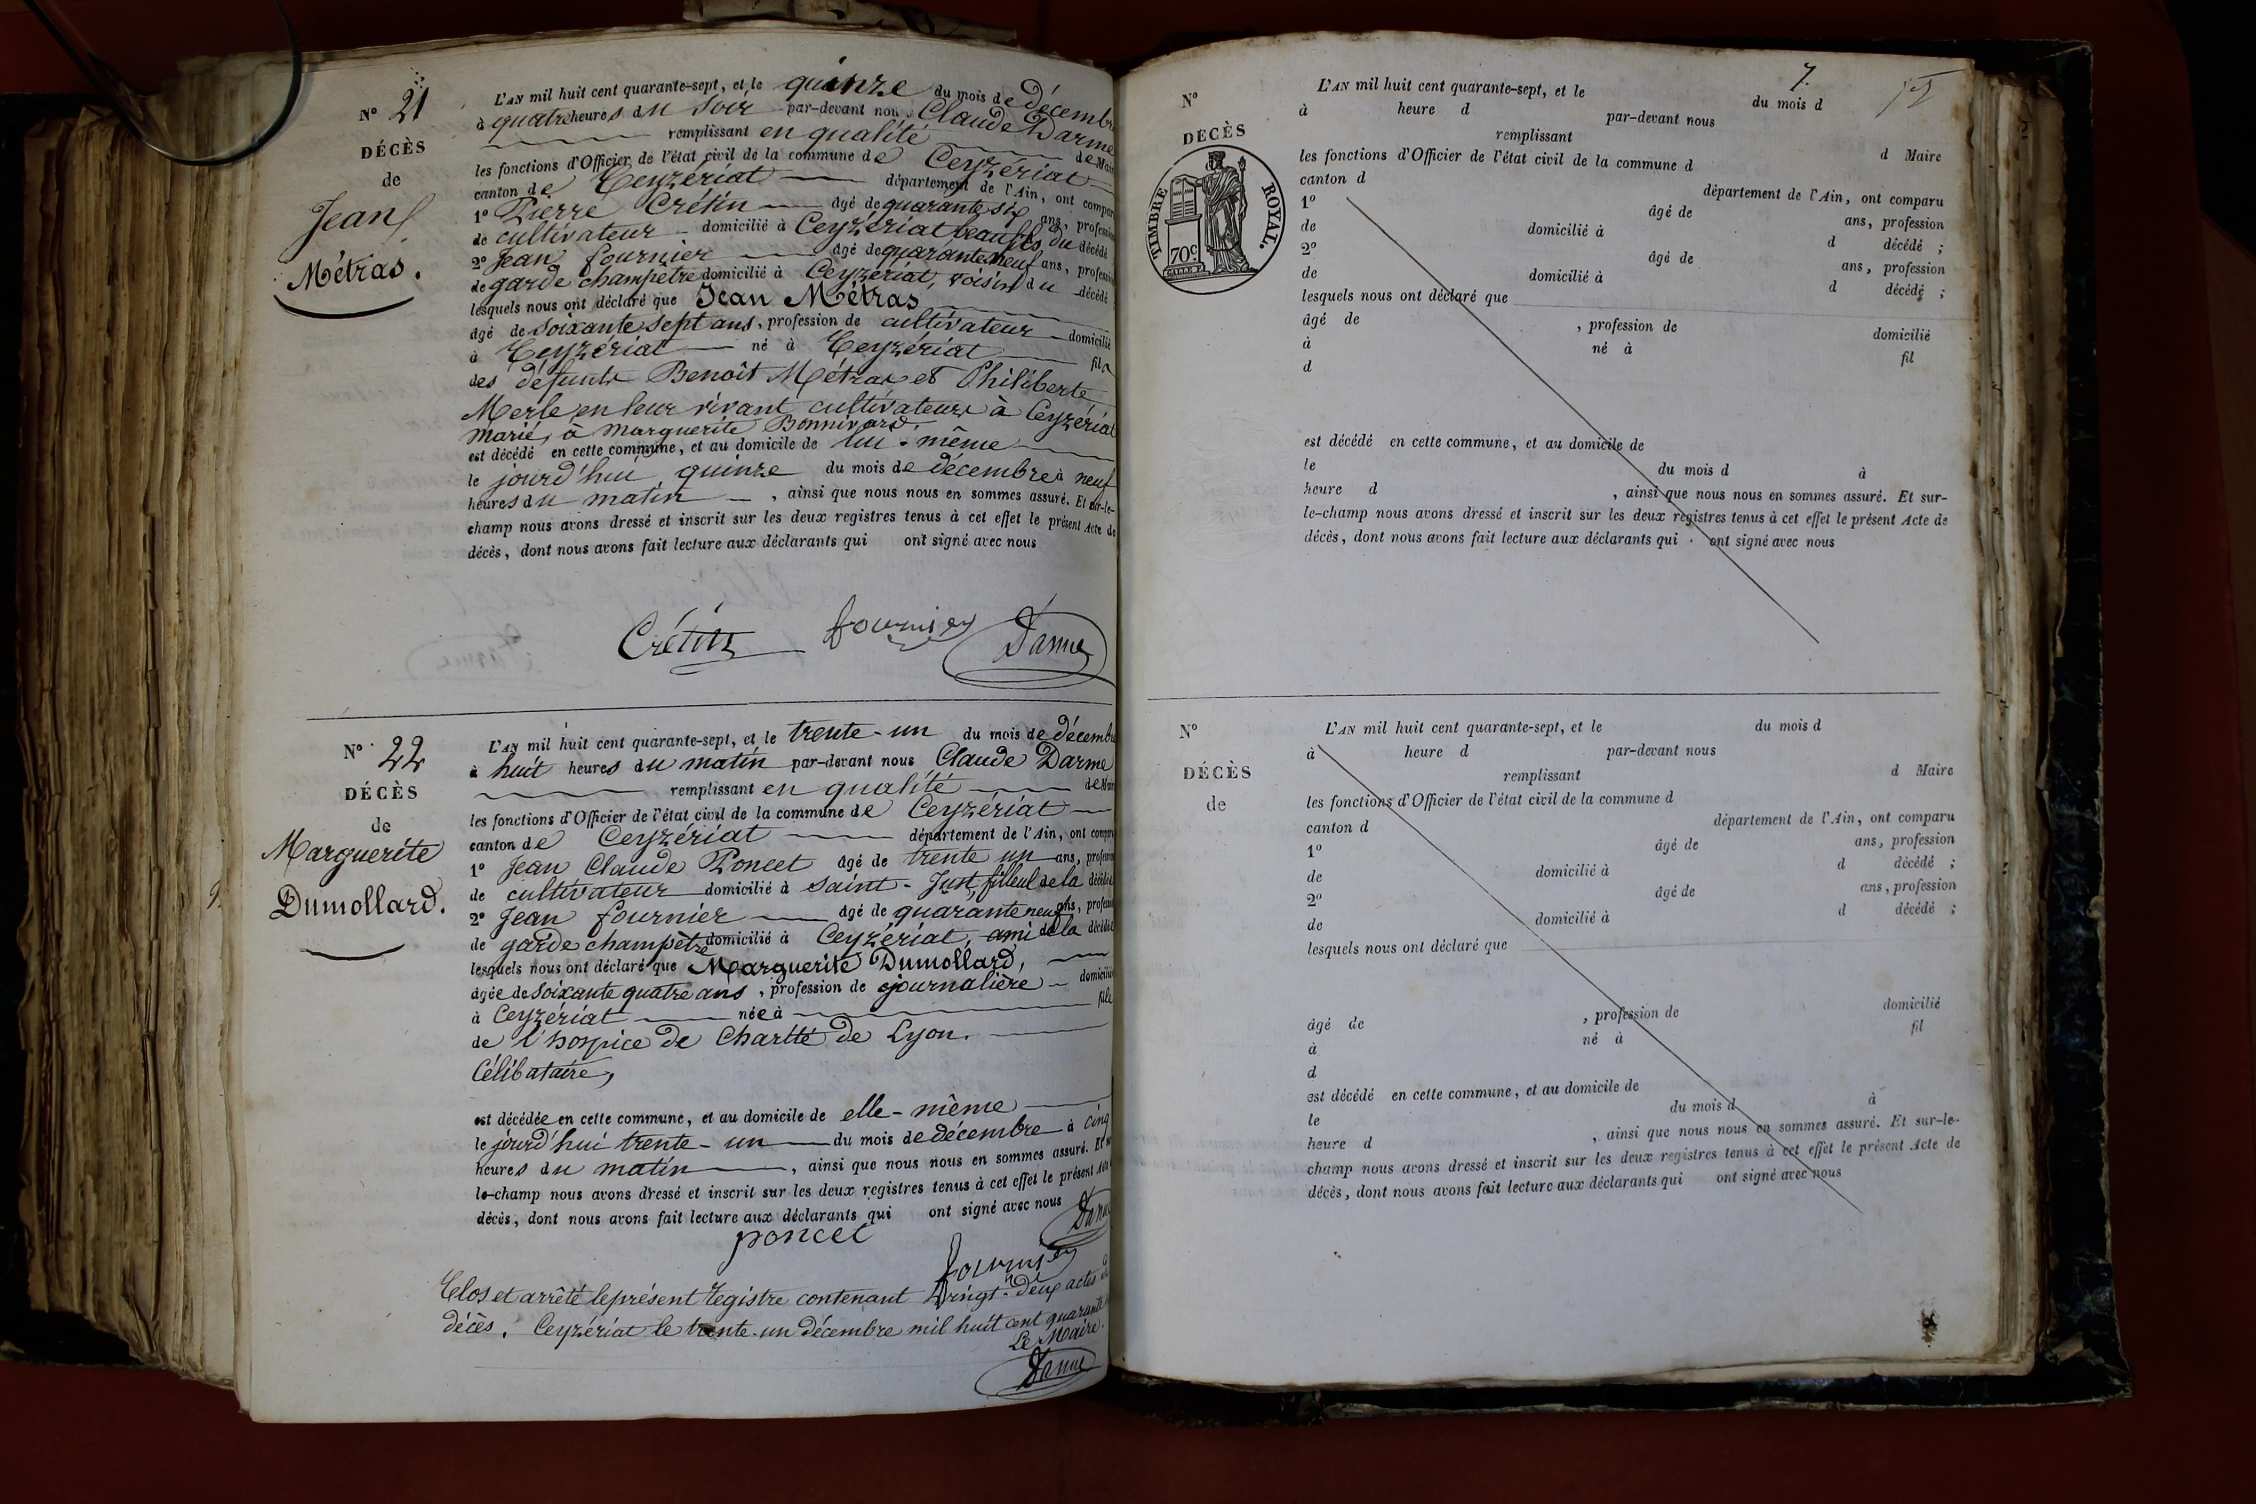 N° 21
DÉCÈS
de
Jean
Métras.
L'AN mil huit cent quarante-sept, et le quinze du mois de décembre
à quatre heures du soir par-devant nous Claude Darme
remplissant en qualité de Maire
les fonctions d'Officier de l'état civil de la commune de Ceyzériat
canton de Ceyzériat département de l'Ain, ont comparu
1° Pierre Crétin âgé de quarante six ans, profession
de cultivateur domicilié à Ceyzériat beau fils du décédé
2° Jean fournier âgé de quarante neuf ans, profession
de garde champêtre domicilié à Ceyzériat, voisin du décédé
lesquels nous ont déclaré que Jean Métras
âgé de soixante sept ans, profession de cultivateur domicilié
à Ceyzériat né à Ceyzériat fils
des défunts Benoît Métras et Philiberte
Merle en leur vivant cultivateurs à Ceyzériat
marié, à marguerite Bonnivard.
est décédé en cette commune, et au domicile de lui-même
le jourd'hui quinze du mois de décembre à neuf
heures du matin, ainsi que nous nous en sommes assuré. Et sur-le-
champ nous avons dressé et inscrit sur les deux registres tenus à cet effet le présent Acte de
décès, dont nous avons fait lecture aux déclarants qui ont signé avec nous
Crétin fournier Darme
N° 22
DÉCÈS
de
Marguerite
Dumollard.
L'AN mil huit cent quarante-sept, et le trente-un du mois de décembre
à huit heures du matin par-devant nous Claude Darme
remplissant en qualité de Maire
les fonctions d'Officier de l'état civil de la commune de Ceyzériat
canton de Ceyzériat département de l'Ain, ont comparu
1° Jean Claude Poncet âgé de trente un ans, profession
de cultivateur domicilié à saint-Just, filleul de la décédée
2° Jean fournier âgé de quarante neuf ans, profession
de garde champêtre domicilié à Ceyzériat, ami de la décédée
lesquels nous ont déclaré que Marguerite Dumollard,
âgée de soixante quatre ans, profession de journalière domiciliée
à Ceyzériat née à fille
de l'hospice de Charité de Lyon.
Célibataire,
est décédée en cette commune, et au domicile de elle-même
le jourd'hui trente-un du mois de décembre à cinq
heures du matin, ainsi que nous nous en sommes assuré. Et sur-
le-champ nous avons dressé et inscrit sur les deux registres tenus à cet effet le présent Acte
décès, dont nous avons fait lecture aux déclarants qui ont signé avec nous
poncet Darme
fournier
Clos et arrêté le présent registre contenant vingt-deux actes de
décès. Ceyzériat le trente-un décembre mil huit cent quarante
Le Maire.
Darme
7.
N°
DÉCÈS
TIMBRE ROYAL.
70c
L'AN mil huit cent quarante-sept, et le du mois d
à heure d par-devant nous
remplissant d Maire
les fonctions d'Officier de l'état civil de la commune d
canton d département de l'Ain, ont comparu
1° âgé de ans, profession
de domicilié à d décédé ;
2° âgé de ans, profession
de domicilié à d décédé ;
lesquels nous ont déclaré que
âgé de , profession de domicilié
à né à fil
d
est décédé en cette commune, et au domicile de
le du mois d à
heure d , ainsi que nous nous en sommes assuré. Et sur-
le-champ nous avons dressé et inscrit sur les deux registres tenus à cet effet le présent Acte de
décès, dont nous avons fait lecture aux déclarants qui ont signé avec nous
N°
DÉCÈS
de
L'AN mil huit cent quarante-sept, et le du mois d
à heure d par-devant nous
remplissant d Maire
les fonctions d'Officier de l'état civil de la commune d
canton d département de l'Ain, ont comparu
1° âgé de ans, profession
de domicilié à d décédé ;
2° âgé de ans, profession
de domicilié à d décédé ;
lesquels nous ont déclaré que
âgé de , profession de domicilié
à né à fil
d
est décédé en cette commune, et au domicile de
le du mois d à
heure d , ainsi que nous nous en sommes assuré. Et sur-le-
champ nous avons dressé et inscrit sur les deux registres tenus à cet effet le présent Acte de
décès, dont nous avons fait lecture aux déclarants qui ont signé avec nous